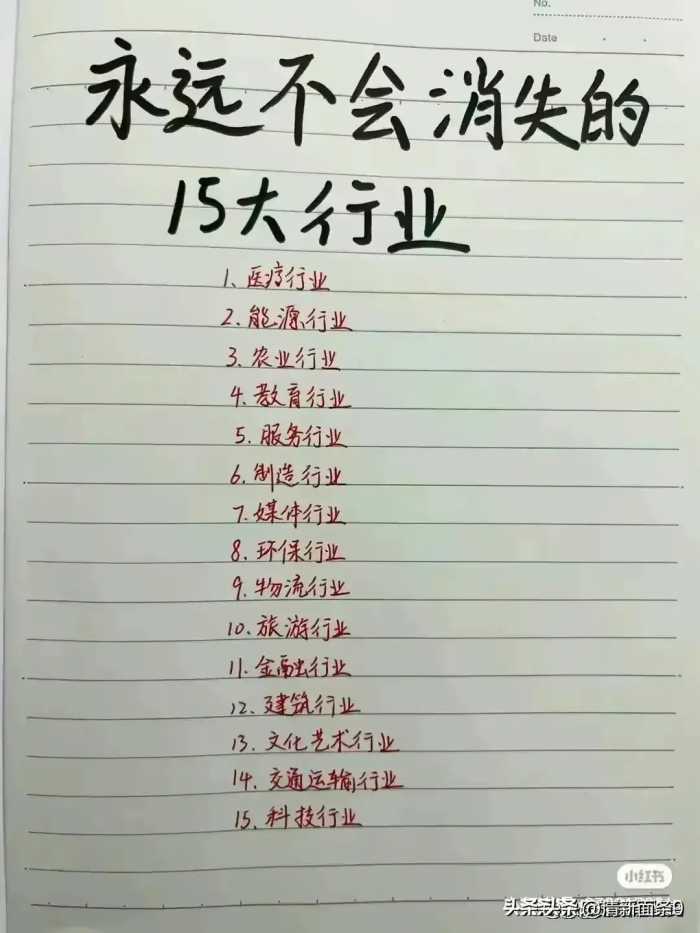 No.
Date
永远不会消失的
15大行业
1、医疗行业
2、能源行业
3、农业行业
4、教育行业
5、服务行业
6、制造行业
7、媒体行业
8、环保行业
9、物流行业
10、旅游行业
11、金融行业
12、建筑行业
13、文化艺术行业
14、交通运输行业
15、科技行业
小红书
头条 @清新面条